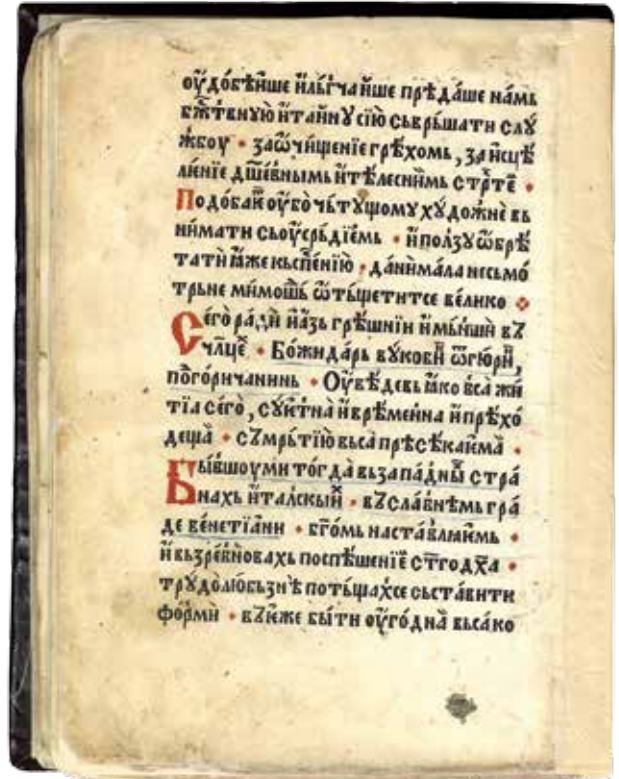 оу҆до́бѣнше и҆льѓча и҆ше прѣда́ше на́мь
бж҃твнꙋю и҆таинꙋ сїю̀ сьврьша́ти слꙋ́
жбоу • заѡ҆чище́нїе грѣ́хомь , за и҆сцѣ
лю́нїе дш҃е́внымь и҆тѣле́снымь стр҇те •
Подоба́ѥ оу҆бо̀ чьтꙋ́щомꙋ хꙋдо́жнѣ вь
ни́мати сьоу҆срь́дїемь • и҆по́лзꙋ ѡ҆брѣ́
тати ꙗ҆́же кьсп҃е́нїю • да́ни ма́ла несьмо́
трьне мимошь̀ ѿты́щетитсе ве́лико
Се́го ра́ди и҆а҆́зь грѣ́шнїи и҆мь́нши вꙁ
чл҃цѣ • Божида́рь вꙋ́кови ѿгю́ри ,
по҆го́ричанинь • Оу҆вѣ́девь ꙗ҆́ко вса̀ жи
тїа се́го , сꙋ́етна и҆врѣ́менна и҆прѣхо́
деща • сꙁмрь́тїю вьса̀ прѣсѣ́каема •
Бы́вшоу ми то́гда̀ вьза́падныⷯ стра́
нахь и҆та́лскыⷯ • вꙁсла́внѣмь гра́
де ве́нетїа́нни • бг҃омь наста́влꙗемь •
и҆вьзре́внова́хь поспѣше́нїе ст҃годх҃а •
трꙋдолю́бьзнѣ поты́щахсе сьста́вити
фо́рми • вꙁѥже бы́ти оу҆го́дна̀ вьса́ко